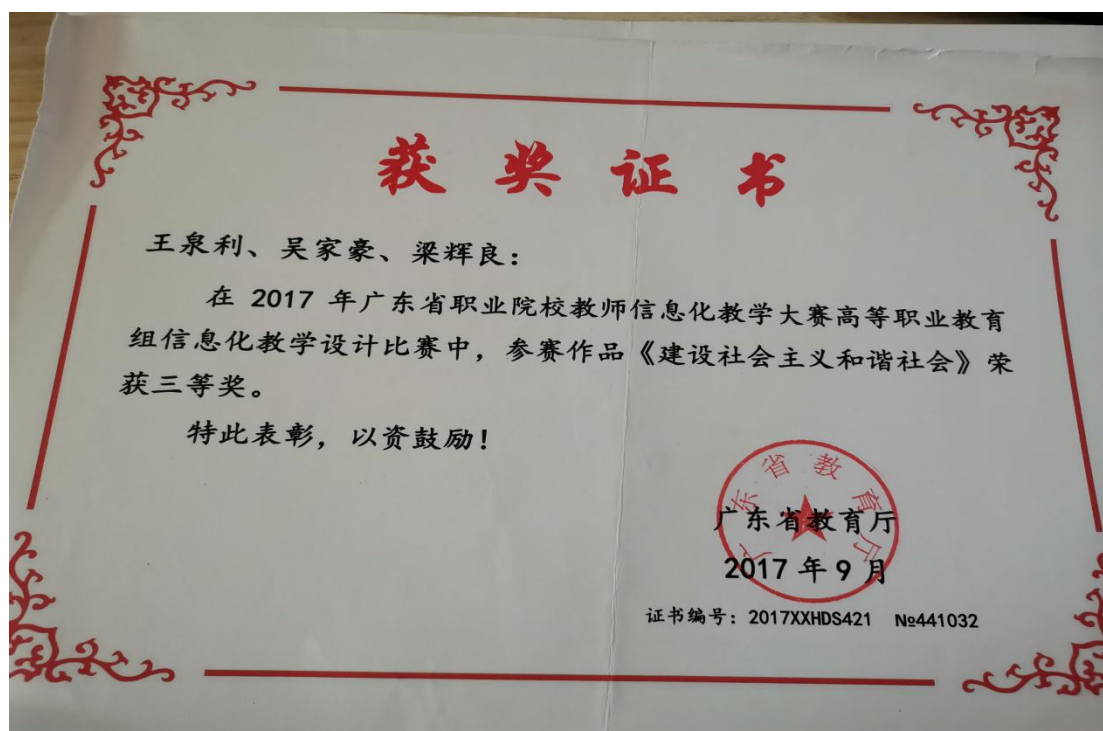 获奖证书
王泉利、吴家豪、梁辉良：
在 2017 年广东省职业院校教师信息化教学大赛高等职业教育
组信息化教学设计比赛中，参赛作品《建设社会主义和谐社会》荣
获三等奖。
特此表彰，以资鼓励！
广东省教育厅
广东省教育厅
2017 年 9 月
证书编号：2017XXHDS421 №441032